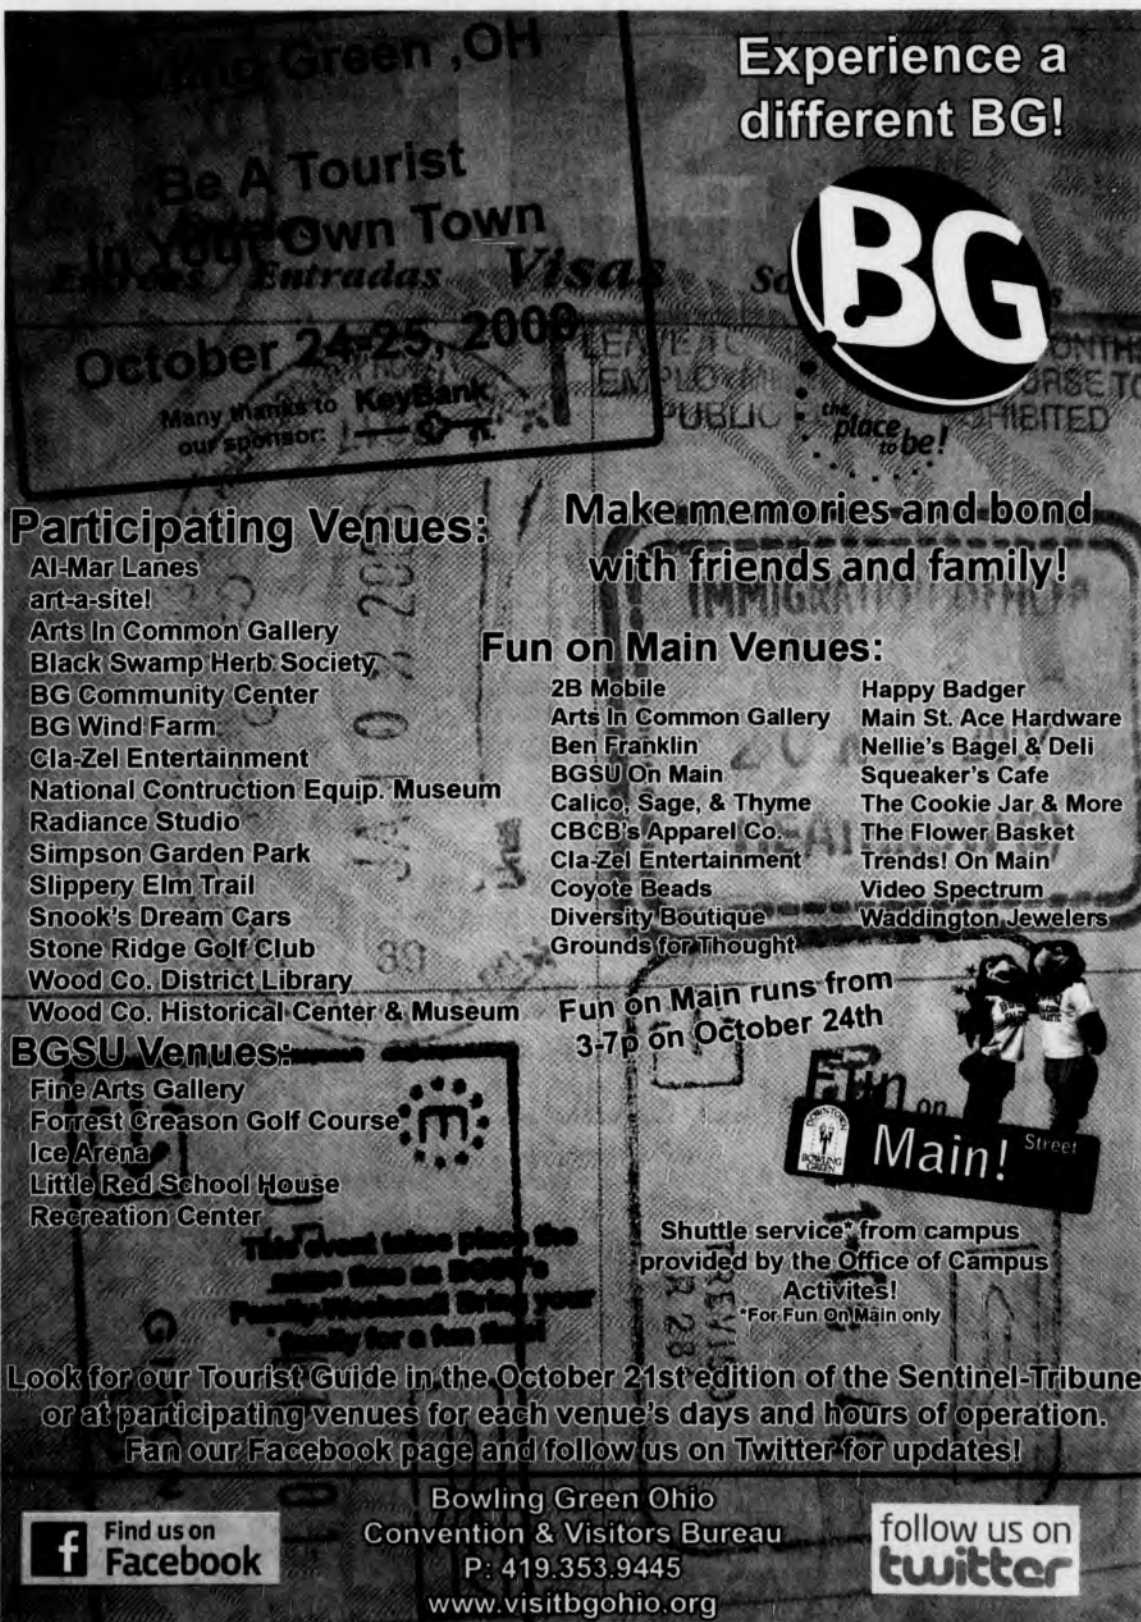 Green ,OH
Be A Tourist
In Your Own Town
Entrées / Entradas Visas
October 24-25, 2009
Many thanks to KeyBank
our sponsor:
Experience a
different BG!
BG
the
place
to be!
EMPLOYM
PUBLIC
HIBITED
Participating Venues:
Al-Mar Lanes
art-a-site!
Arts In Common Gallery
Black Swamp Herb Society
BG Community Center
BG Wind Farm
Cla-Zel Entertainment
National Contruction Equip. Museum
Radiance Studio
Simpson Garden Park
Slippery Elm Trail
Snook's Dream Cars
Stone Ridge Golf Club
Wood Co. District Library
Wood Co. Historical Center & Museum
BGSU Venues:
Fine Arts Gallery
Forrest Creason Golf Course
Ice Arena
Little Red School House
Recreation Center
This event takes place the
same time as BGSU's
Family Weekend! Bring your
family for a fun time!
Make memories and bond
with friends and family!
Fun on Main Venues:
2B Mobile
Arts In Common Gallery
Ben Franklin
BGSU On Main
Calico, Sage, & Thyme
CBCB's Apparel Co.
Cla-Zel Entertainment
Coyote Beads
Diversity Boutique
Grounds for Thought
Happy Badger
Main St. Ace Hardware
Nellie's Bagel & Deli
Squeaker's Cafe
The Cookie Jar & More
The Flower Basket
Trends! On Main
Video Spectrum
Waddington Jewelers
Fun on Main runs from
3-7p on October 24th
Fun on
Main! Street
DOWNTOWN
BOWLING
GREEN
Shuttle service* from campus
provided by the Office of Campus
Activites!
*For Fun On Main only
Look for our Tourist Guide in the October 21st edition of the Sentinel-Tribune
or at participating venues for each venue's days and hours of operation.
Fan our Facebook page and follow us on Twitter for updates!
f Find us on
Facebook
Bowling Green Ohio
Convention & Visitors Bureau
P: 419.353.9445
www.visitbgohio.org
follow us on
twitter